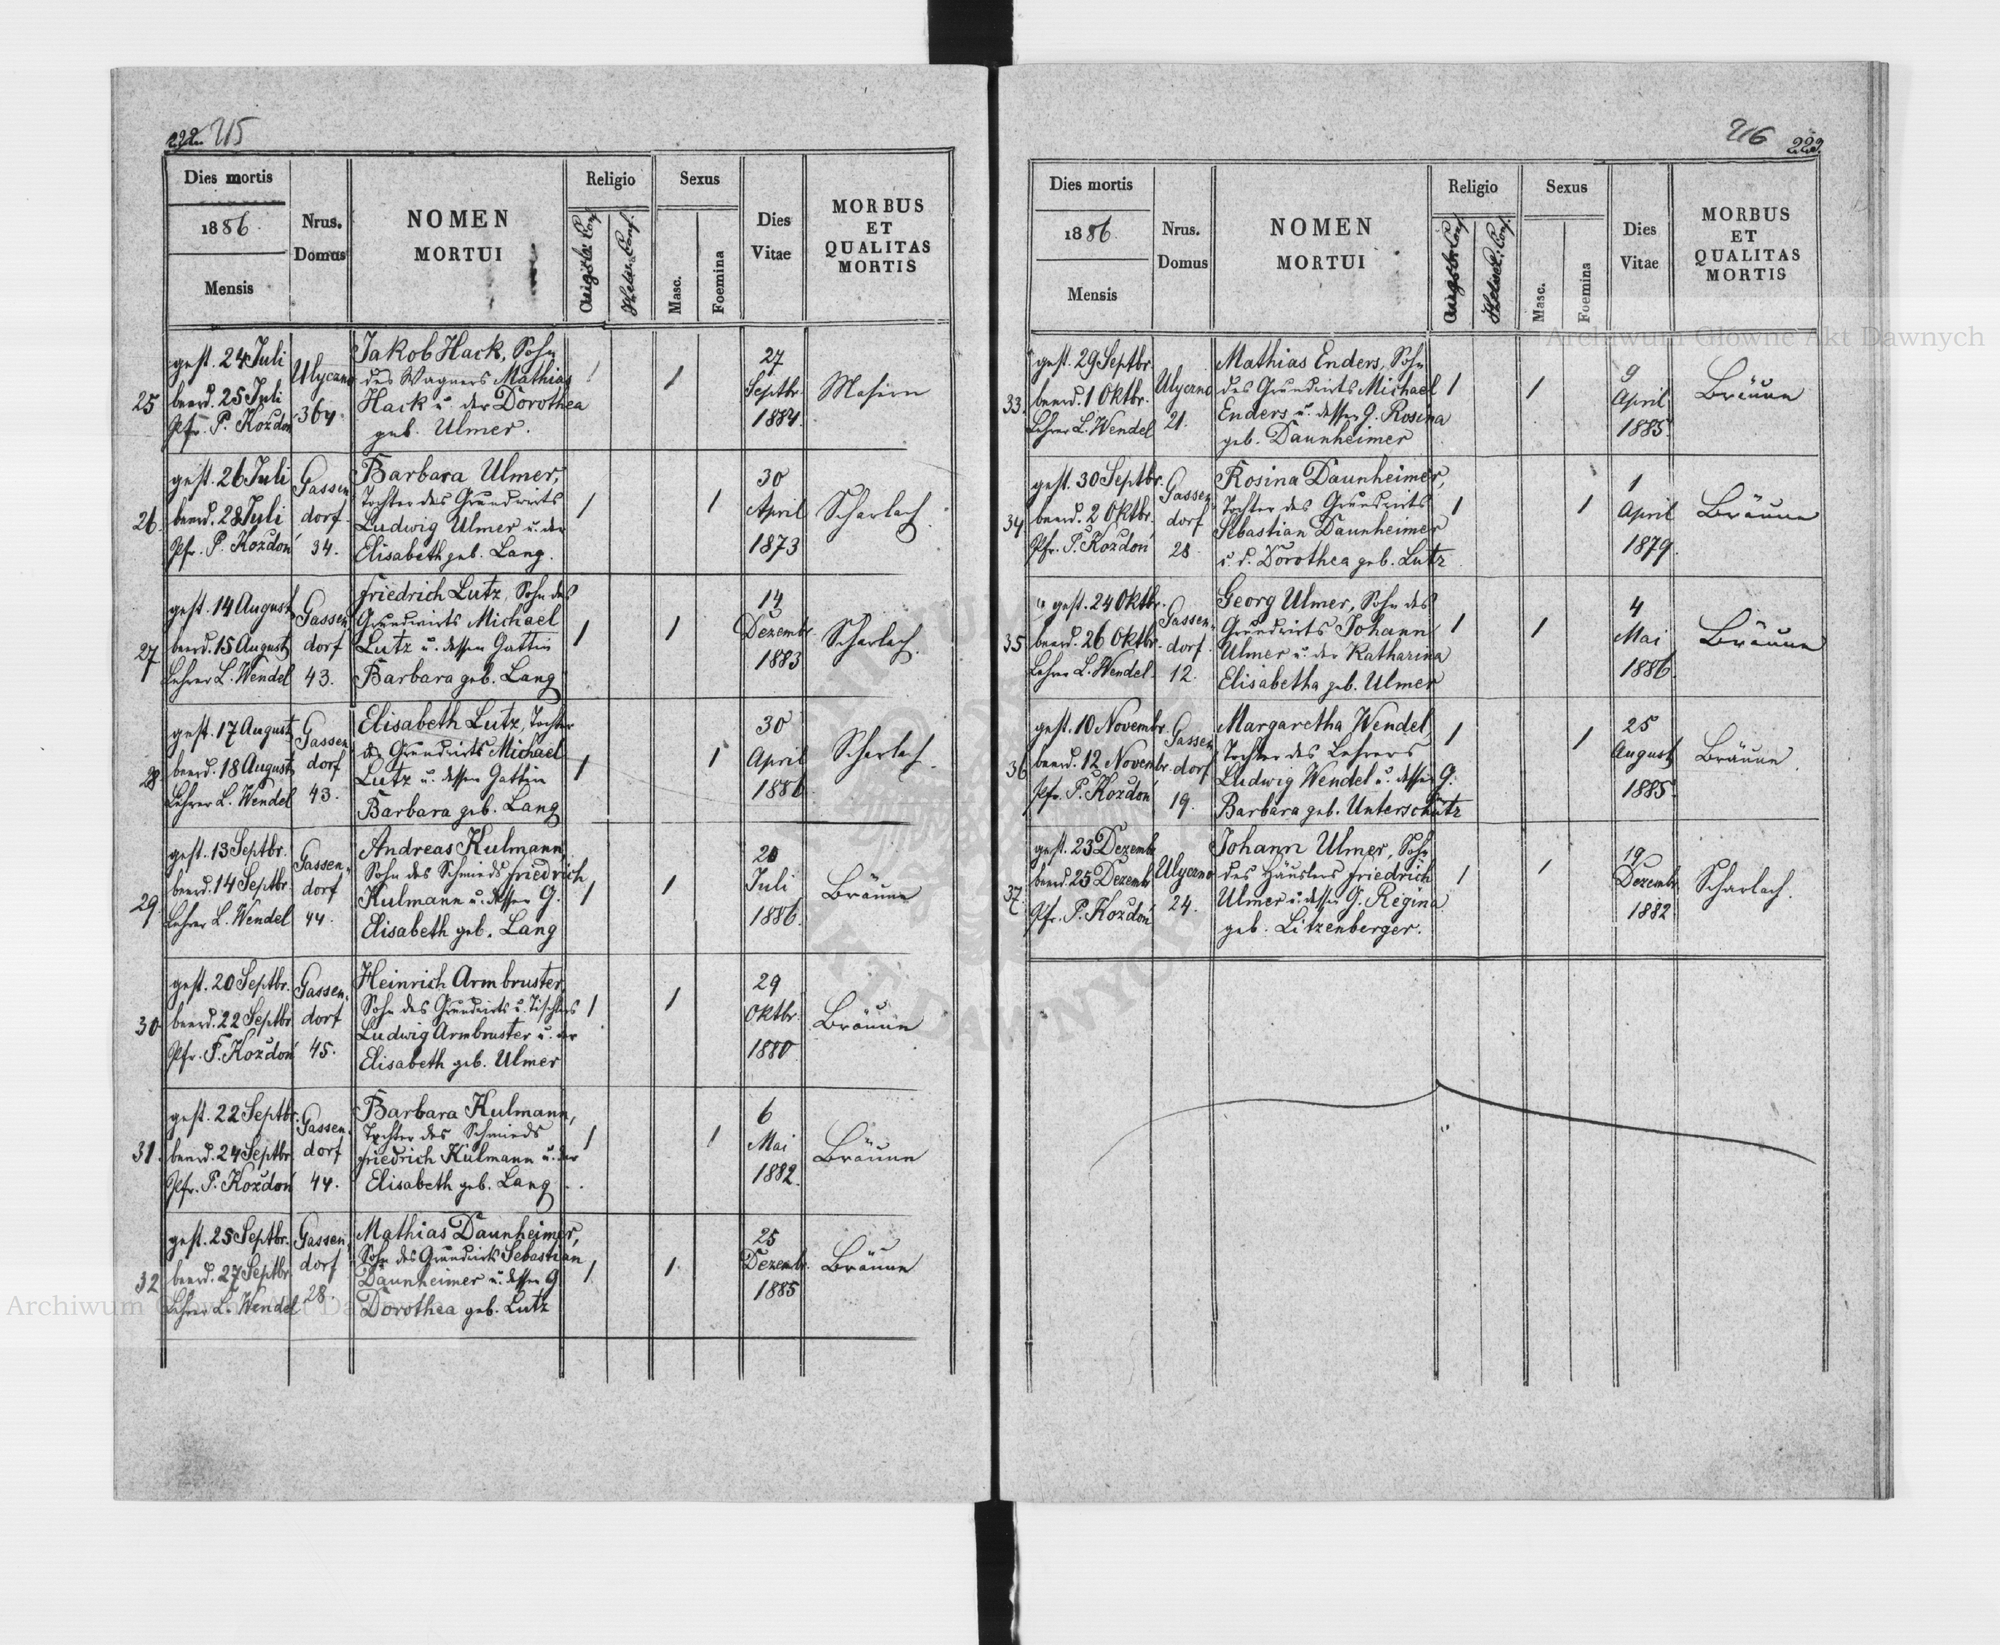 222. 215
Dies mortis
1886.
Mensis
Nrus.
Domus
NOMEN
MORTUI
Religio
Augsbr. Conf.
Helv. Conf.
Sexus
Masc.
Foemina
Dies
Vitae
MORBUS
ET
QUALITAS
MORTIS
25
gest. 24 Juli
beerd. 25 Juli
Pfr. P. Kozdoń
Ulyczno
364.
Jakob Hack, Sohn
des Wagners Mathias
Hack u. der Dorothea
geb. Ulmer.
1
1
27
Septbr.
1884.
Masern
26.
gest. 26 Juli
beerd. 28 Juli
Pfr. P. Kozdoń
Gassen
dorf
34.
Barbara Ulmer,
Tochter des Grundwirts
Ludwig Ulmer u. der
Elisabeth geb. Lang.
1
1
30
April
1873
Scharlach.
27
gest. 14 August
beerd. 15 August
Lehrer L. Wendel
Gassen
dorf
43.
Friedrich Lutz, Sohn des
Grundwirts Michael
Lutz u. dessen Gattin
Barbara geb. Lang
1
1
14
Dezembr.
1883
Scharlach.
28
gest. 17 August
beerd. 18 August
Lehrer L. Wendel
Gassen
dorf
43.
Elisabeth Lutz, Tochter
des Grundwirts Michael
Lutz u. dessen Gattin
Barbara geb. Lang
1
1
30
April
1886.
Scharlach.
29
gest. 13 Septbr.
beerd. 14 Septbr.
Lehrer L. Wendel
Gassen-
dorf
44.
Andreas Kulmann
Sohn des Schmieds Friedrich
Kulmann u. dessen G.
Elisabeth geb. Lang
1
1
20
Juli
1886.
Bräune
30
gest. 20 Septbr.
beerd. 22 Septbr
Pfr. P. Kozdoń
Gassen-
dorf
45.
Heinrich Armbruster,
Sohn des Grundwirts u. Tischlers
Ludwig Armbruster u. der
Elisabeth geb. Ulmer
1
1
29
Oktbr.
1880
Bräune
31.
gest. 22 Septbr.
beerd. 24 Septbr.
Pfr. P. Kozdoń
Gassen-
dorf
44.
Barbara Kulmann,
Tochter des Schmieds
Friedrich Kulmann u. der
Elisabeth geb. Lang
1
1
6
Mai
1882.
Bräune
32
gest. 25 Septbr.
beerd. 27 Septbr.
Lehrer L. Wendel
Gassen-
dorf
28.
Mathias Daunheimer,
Sohn des Grundwirts Sebastian
Daunheimer u. dessen G.
Dorothea geb. Lutz
1
1.
25
Dezembr.
1885
Bräune
216 223.
Dies mortis
1886.
Mensis
Nrus.
Domus
NOMEN
MORTUI
Religio
Augsbr. Conf.
Helvet. Conf.
Sexus
Masc.
Foemina
Dies
Vitae
MORBUS
ET
QUALITAS
MORTIS
33.
gest. 29 Septbr.
beerd. 1 Oktbr.
Lehrer L. Wendel
Ulyczno
21.
Mathias Enders, Sohn
des Grundwirts Michael
Enders u. dessen G. Rosina
geb. Daunheimer
1
1
9
April
1885.
Bräune
34
gest. 30 Septbr.
beerd. 2 Oktbr.
Pfr. P. Kozdoń
Gassen-
dorf
28
Rosina Daunheimer,
Tochter des Grundwirts
Sebastian Daunheimer
u. d. Dorothea geb. Lutz
1
1
1
April
1879.
Bräune
35
gest. 24 Oktbr.
beerd. 26 Oktbr.
Lehrer L. Wendel
Gassen-
dorf.
12.
Georg Ulmer, Sohn des
Grundwirts Johann
Ulmer u. der Katharina
Elisabetha geb. Ulmer
1
1
4
Mai
1886.
Bräune
36
gest. 10 Novembr.
beerd. 12 Novembr.
Pfr. P. Kozdoń
Gassen
dorf
19.
Margaretha Wendel,
Tochter des Lehrers
Ludwig Wendel u. dessen G.
Barbara geb. Unterschütz
1
1
25
August
1885.
Bräune.
37.
gest. 23 Dezembr
beerd. 25 Dezembr
Pfr. P. Kozdoń
Ulyczno
24.
Johann Ulmer, Sohn
des Häuslers Friedrich
Ulmer u. dessen G. Regina
geb. Litzenberger.
1
1
19
Dezembr.
1882
Scharlach.
Archiwum Głowne Akt Dawnych
Archiwum Głowne Akt Dawnych